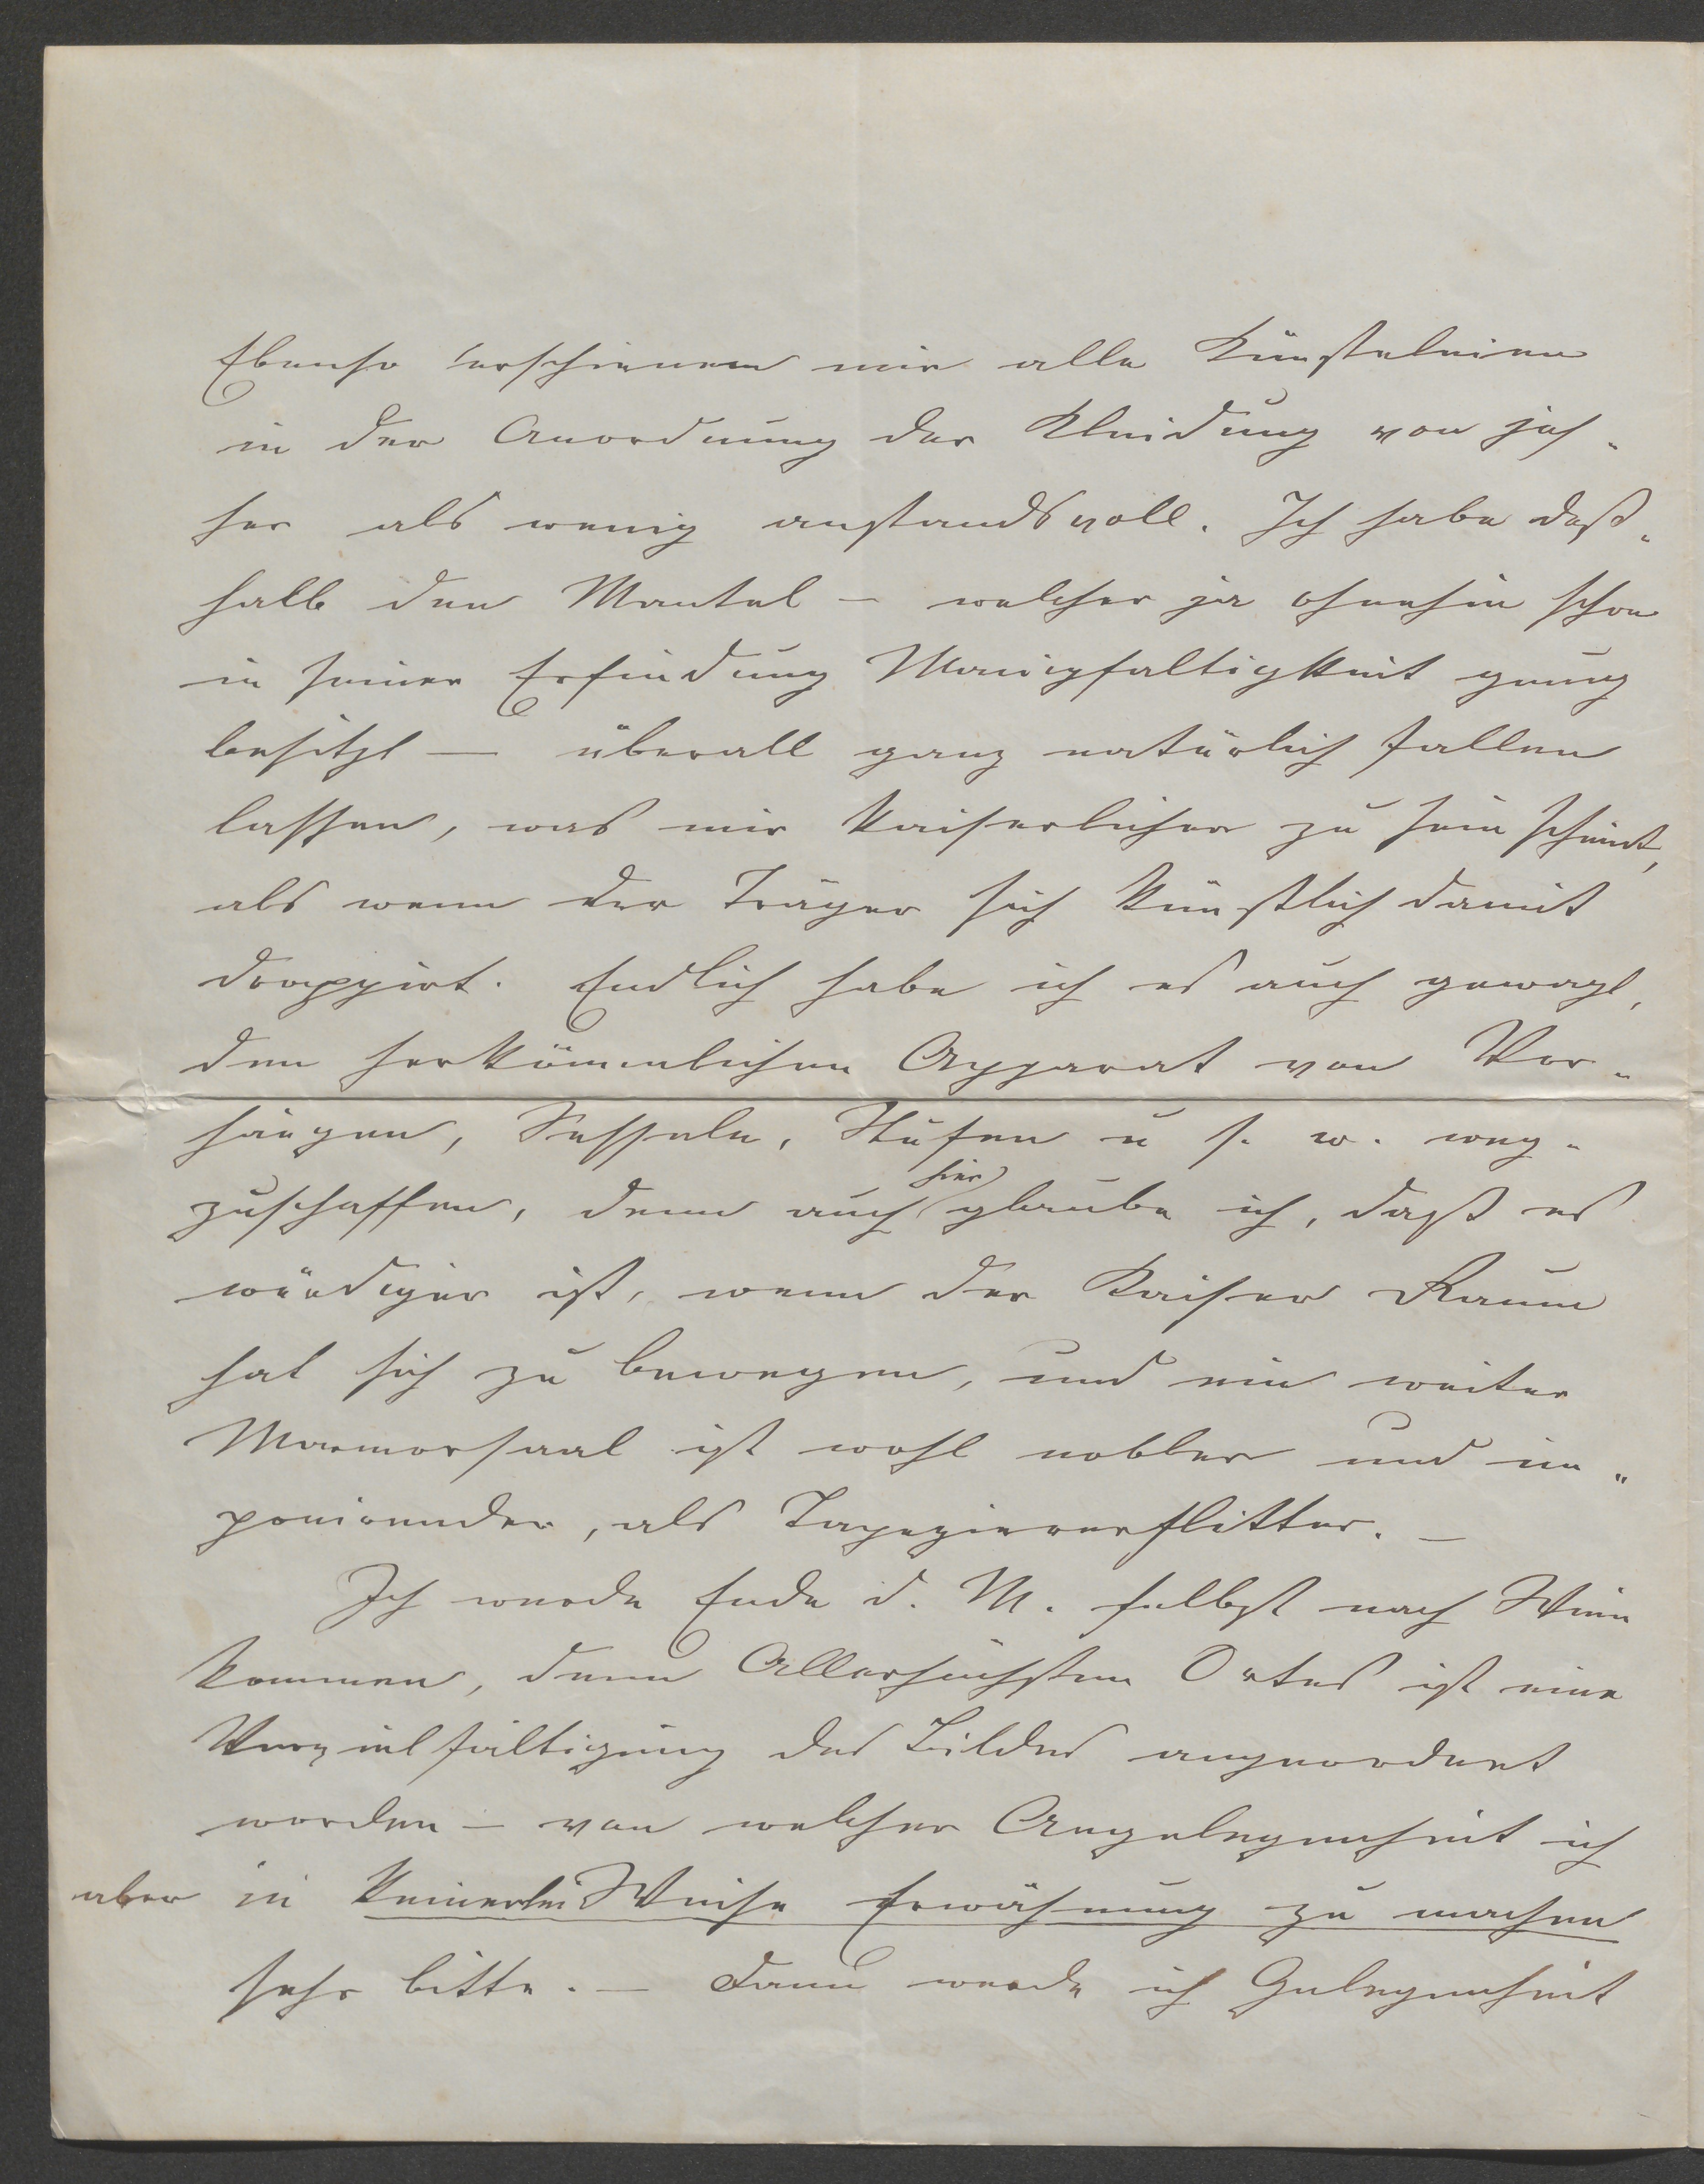 Ebenso erschienen mir alle Künsteleien
in der Anordnung der Kleidung von je-
her als wenig anstandsvoll. Ich habe deß-
halb den Mantel — welcher ja ohnehin schon
in seiner Erfindung Manigfaltigkeit genug
besitzt — überall ganz natürlich fallen
lassen, was mir kaiserlicher zu sein scheint,
als wenn der Träger sich künstlich damit
drappirt. Endlich habe ich es auch gewagt,
den herkömmlichen Apparat von Vor-
hängen, Sesseln, Stufen u s. w. weg-
zuschaffen, denn auch hier glaube ich, daß es
würdiger ist, wenn der Kaiser Raum
hat sich zu bewegen, und ein weiter
Marmorsaal ist wohl nobler und im-
ponirender, als Tapeziererflitter. —
Ich werde Ende d. M. selbst nach Wien
kommen, denn Allerhöchsten Ortes ist eine
Vervielfältigung des Bildes angeordnet
worden — von welcher Angelegenheit ich
aber in keinerlei Weise Erwähnung zu machen
sehr bitte. — Dann werde ich Gelegenheit